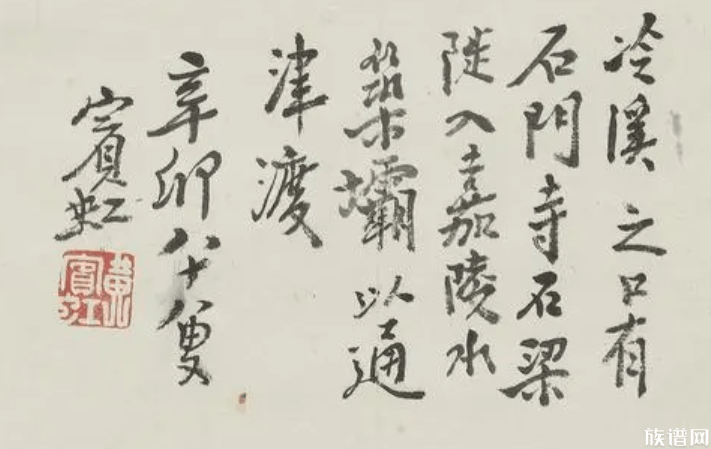 冷溪之口有
石門寺石梁
陡入嘉陵水
築壩以通
津渡
辛卯八十八叟
賓虹
黄賓虹
族谱网